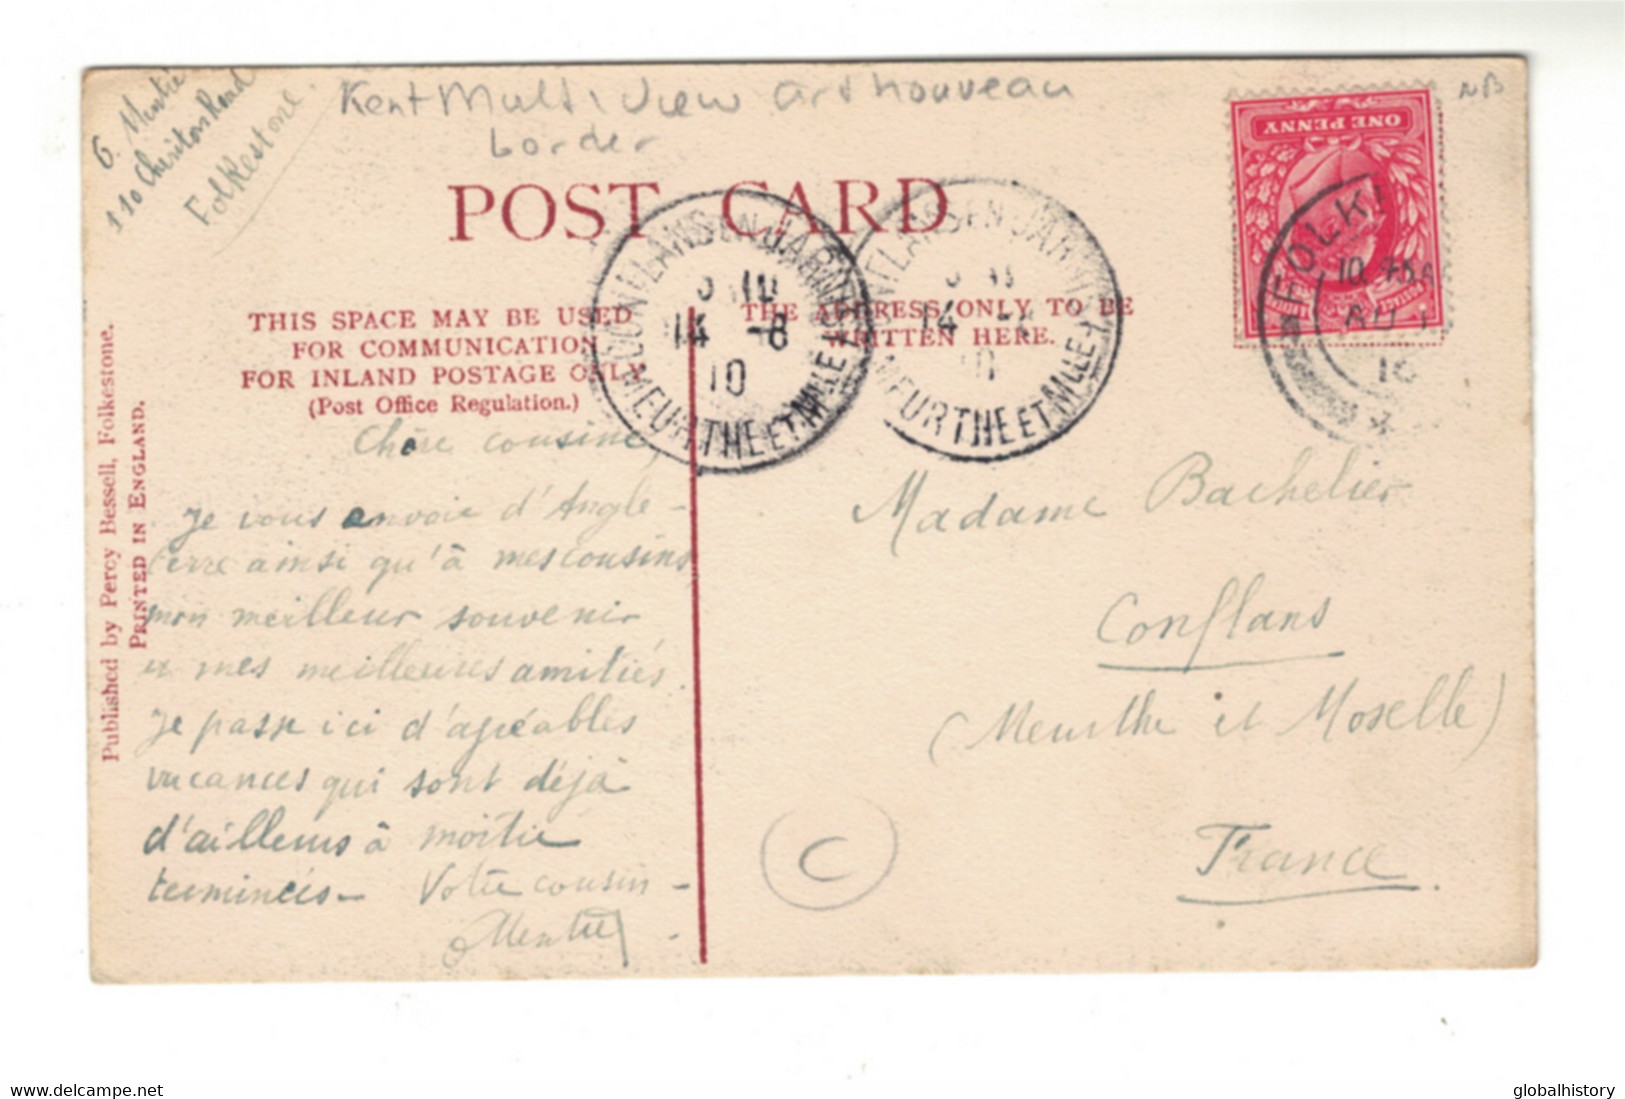 G. Mentié
110 Cheriton Road
Folkestone
Kent Multi View art nouveau
border
NB
POST CARD
ONE PENNY
THIS SPACE MAY BE USED
FOR COMMUNICATION
FOR INLAND POSTAGE ONLY
(Post Office Regulation.)
THE ADDRESS ONLY TO BE
WRITTEN HERE.
CONFLANS EN JARNISY
14 -8
10
MEURTHE ET MLLE
CONFLANS EN JARNISY
14 -8
10
MEURTHE ET MLLE
FOLK
10
AU 1
10
Published by Percy Bessell, Folkestone.
PRINTED IN ENGLAND.
Chère cousine,
Je vous envoie d'Angle-
terre ainsi qu'à mes cousins
mon meilleur souvenir
et mes meilleures amitiés.
Je passe ici d'agréables
vacances qui sont déjà
d'ailleurs à moitié
terminées – Votre cousin –
Mentié
Madame Bachelier
Conflans
(Meurthe et Moselle)
France
C
www.delcampe.net
globalhistory